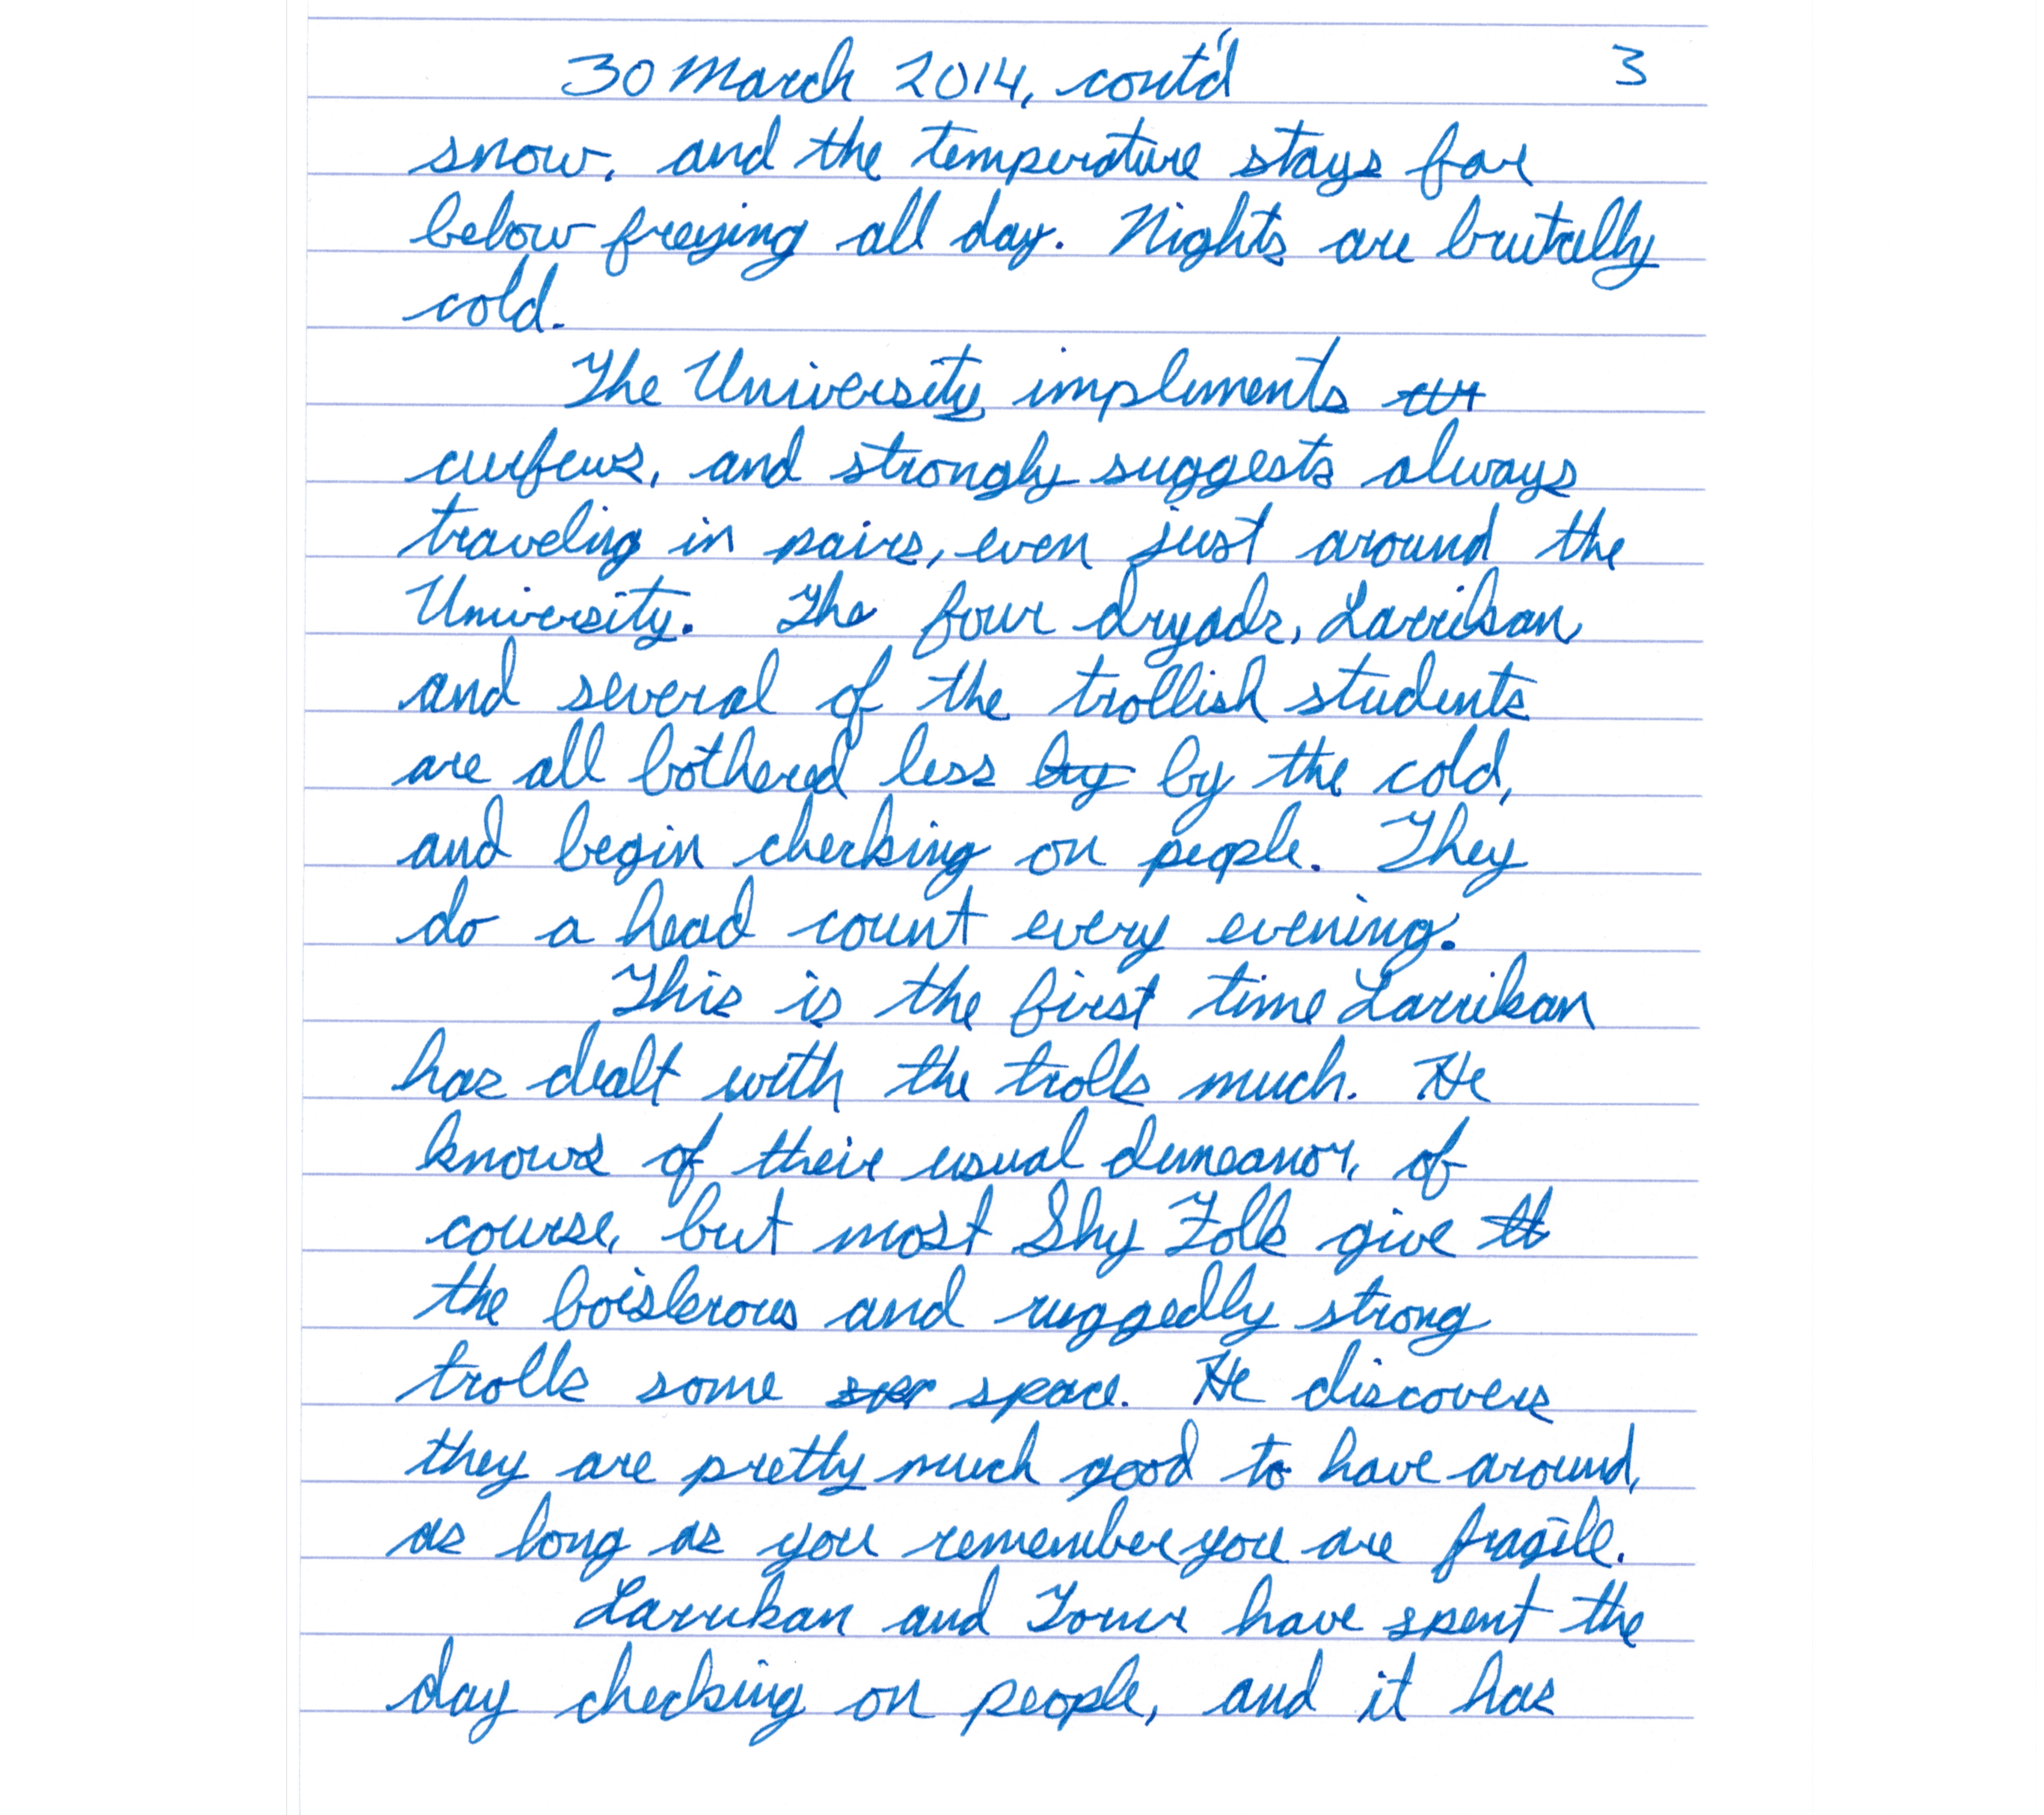 30 March 2014, cont'd 3
snow, and the temperature stays far
below freezing all day. Nights are brutally
cold.
The University implements
curfews, and strongly suggests always
traveling in pairs, even just around the
University. The four dryads, Larrikan
and several of the trollish students
are all bothered less by by the cold,
and begin checking on people. They
do a head count every evening.
This is the first time Larrikan
has dealt with the trolls much. He
knows of their usual demeanor, of
course, but most Shy Folk give tt
the boisterous and ruggedly strong
trolls some space. He discovers
they are pretty much good to have around,
as long as you remember you are fragile.
Larrikan and have spent the
day checking on people, and it has